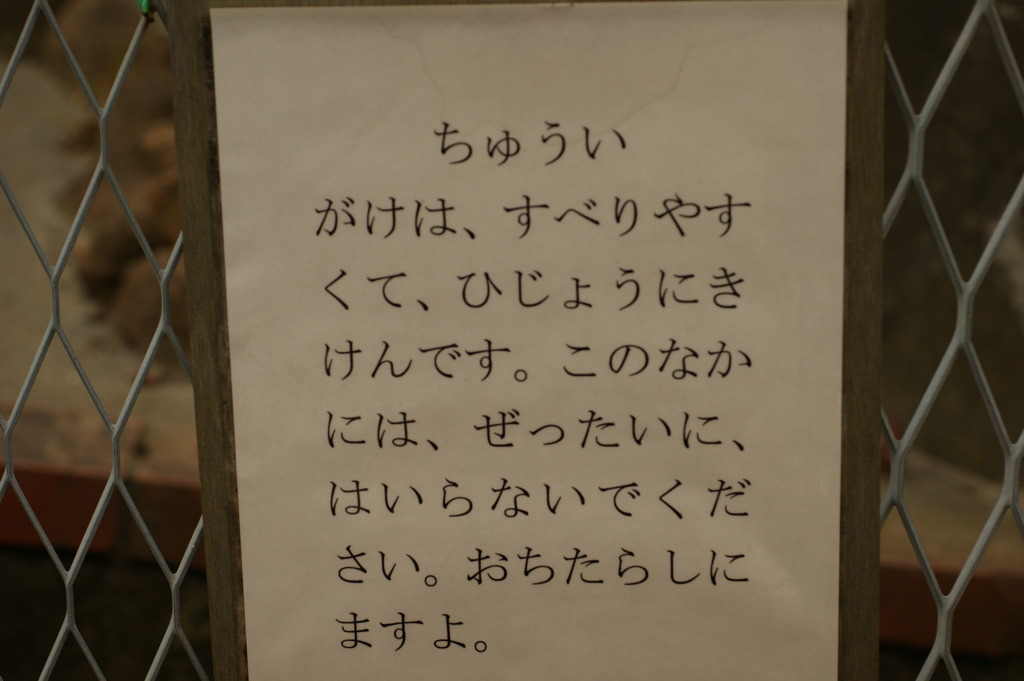 ちゅうい
がけは、すべりやす
くて、ひじょうにき
けんです。このなか
には、ぜったいに、
はいらないでくだ
さい。おちたらしに
ますよ。